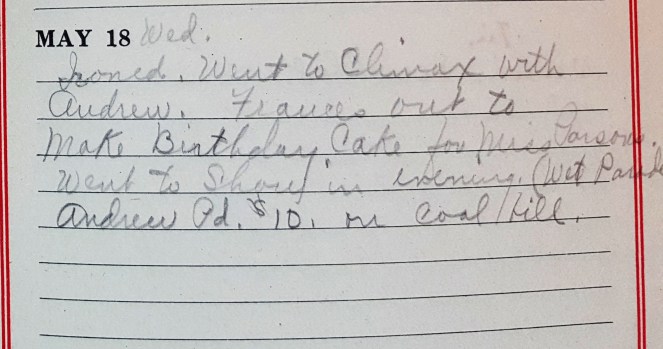 MAY 18 Wed.
Ironed. Went to Climax with
Andrew. Frances out to
Make Birthday Cake for Miss Parsons.
Went to Show in evening. (Wet Parade
Andrew Pd. $10. on Coal bill.